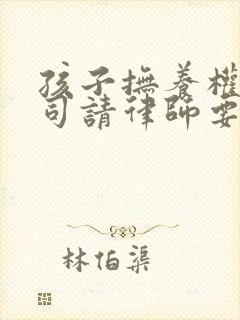 孩子撫養權
司請律師要
林伯渠